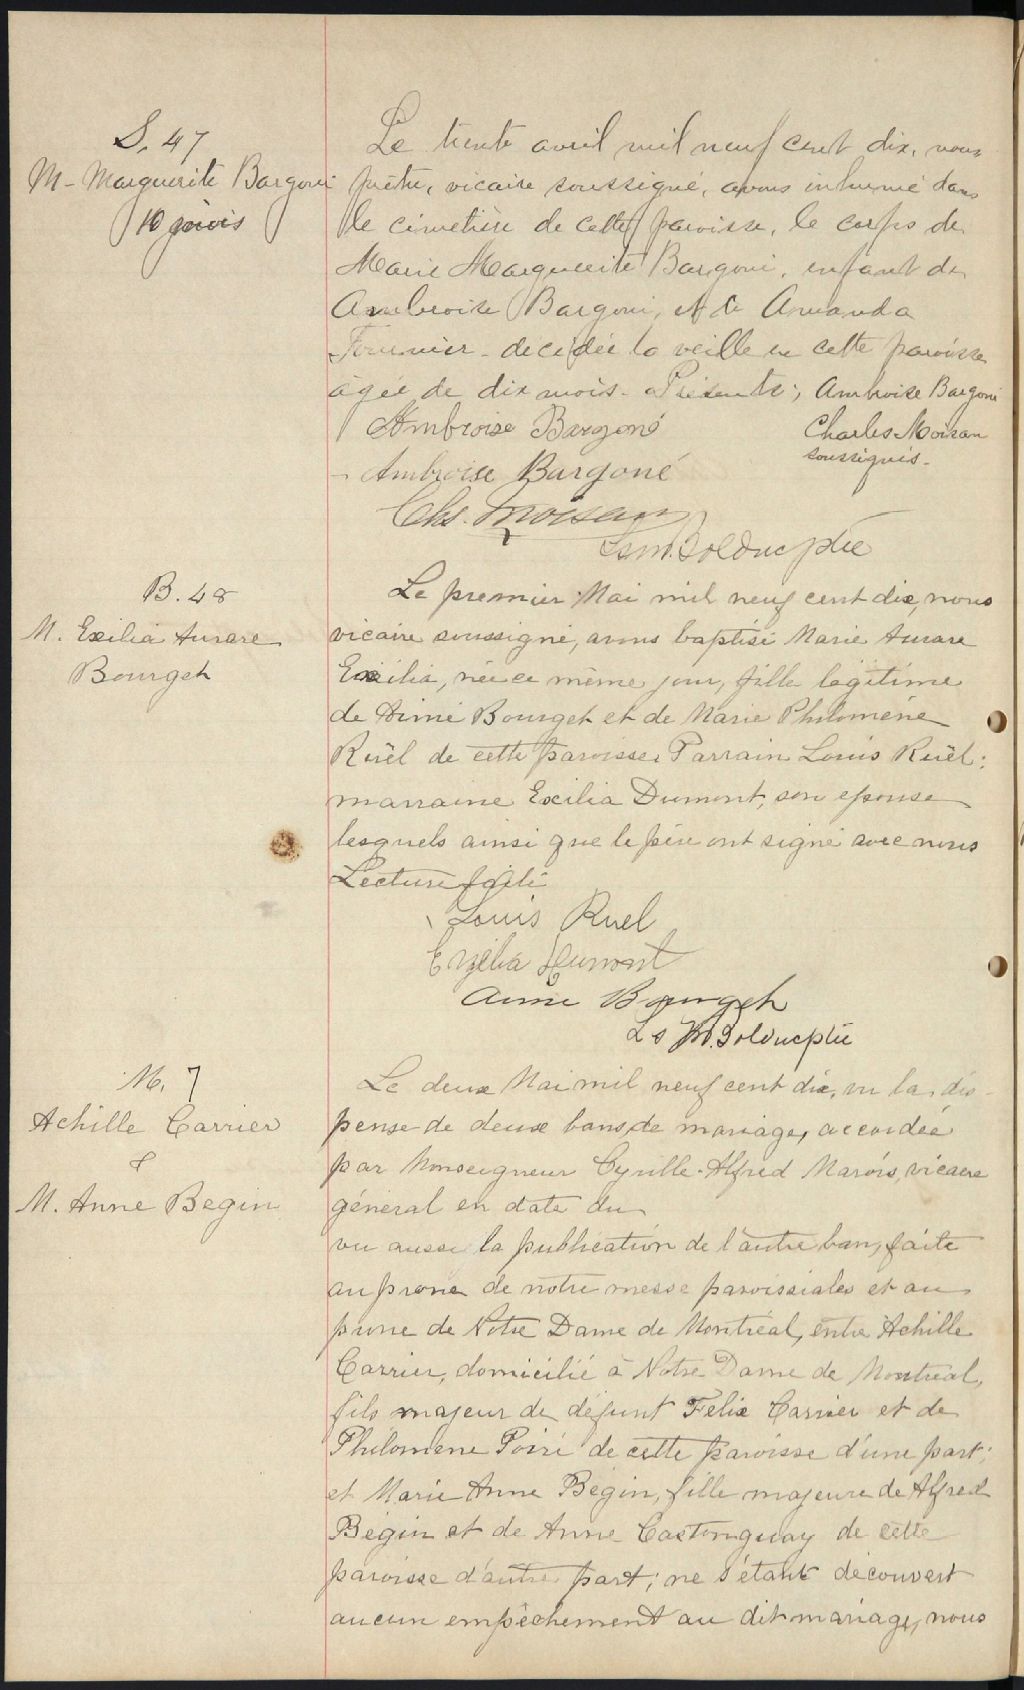 S. 47
M- Marguerite Bargoni
10 mois
Le trente avril mil neuf cent dix, nous
prêtre, vicaire soussigné, avons inhumé dans
le cimetière de cette paroisse, le corps de
Marie Marguerite Bargoni, enfant de
Ambroise Bargoni, et de Amanda
Fournier - décédée la veille en cette paroisse
âgée de dix mois - Présents; Ambroise Bargoni
Charles Moisan
soussignés.
Ambroise Bargoné
Ambroise Bargoné
Chs. Moisan
Ls M. Bolduc ptre
B. 48
M. Exilia Aurare
Bourget
Le premier Mai mil neuf cent dix, nous
vicaire soussigné, avons baptisé Marie Aurare
Exilia, née ce même jour, fille légitime
de Aimé Bourget et de Marie Philomène
Ruël de cette paroisse. Parrain Louis Ruël;
marraine Exilia Dumont, son epouse
lesquels ainsi que le père ont signé avec nous
Lecture faite
Louis Ruel
Exelia Dumont
Aimé Bourget
Ls M. Bolduc ptre
M. 7
Achille Carrier
&
M. Anne Begin
Le deux Mai mil neuf cent dix, vu la dis-
pense de deux bans de mariage, accordée
par Monseigneur Cyrille-Alfred Marois, vicaire
général en date du
vu aussi la publication de l'autre ban, faite
au prone de notre messe paroissiales et au
prone de Notre Dame de Montréal, entre Achille
Carrier, domicilié à Notre Dame de Montréal,
fils majeur de défunt Felix Carrier et de
Philomène Poiré de cette paroisse d'une part;
et Marie Anne Bégin, fille majeure de Alfred
Bégin et de Anne Castonguay de cette
paroisse d'autre part; ne s'étant découvert
aucun empêchement au dit mariage, nous